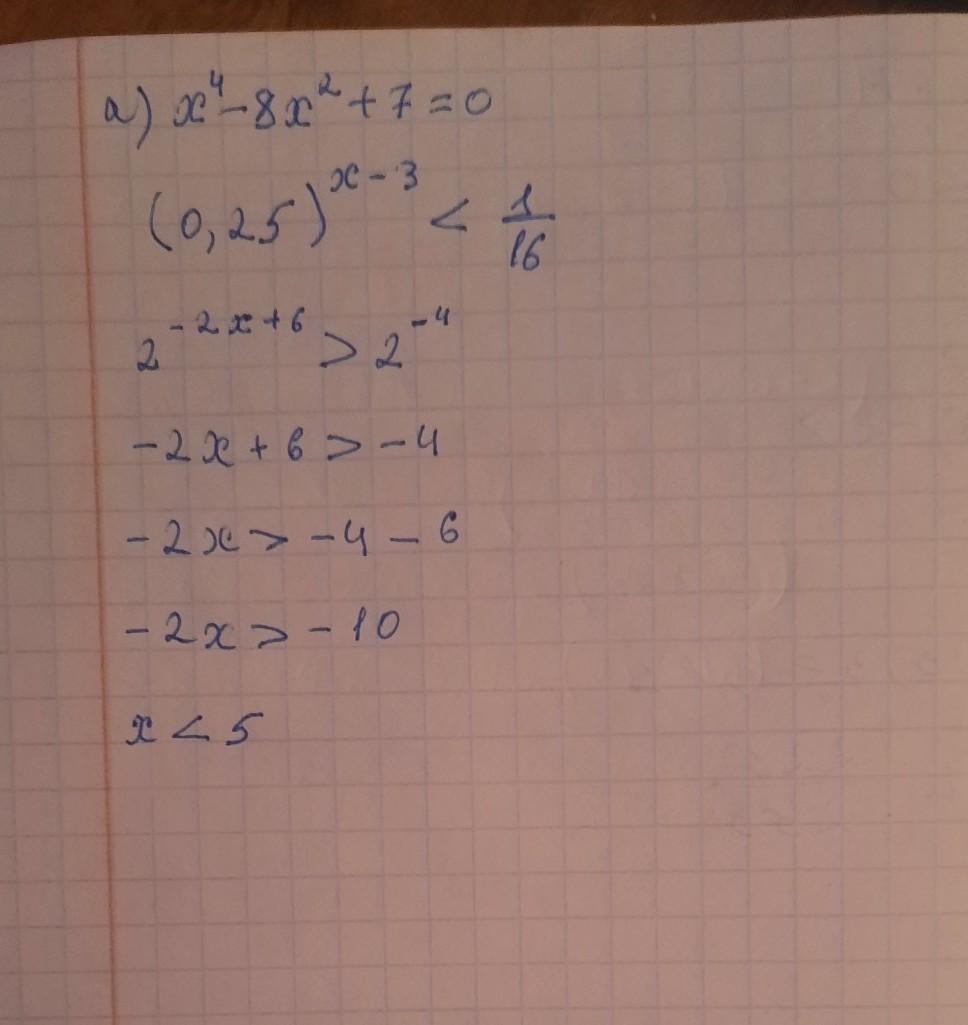 а) x⁴ - 8x² + 7 = 0
(0,25)ˣ⁻³ < 1/16
2⁻²ˣ⁺⁶ > 2⁻⁴
-2x + 6 > -4
-2x > -4 - 6
-2x > -10
x < 5